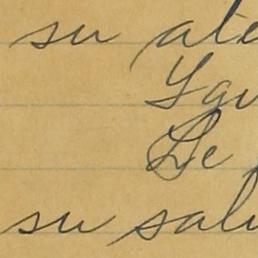 su ate
Ygu
De
su salu